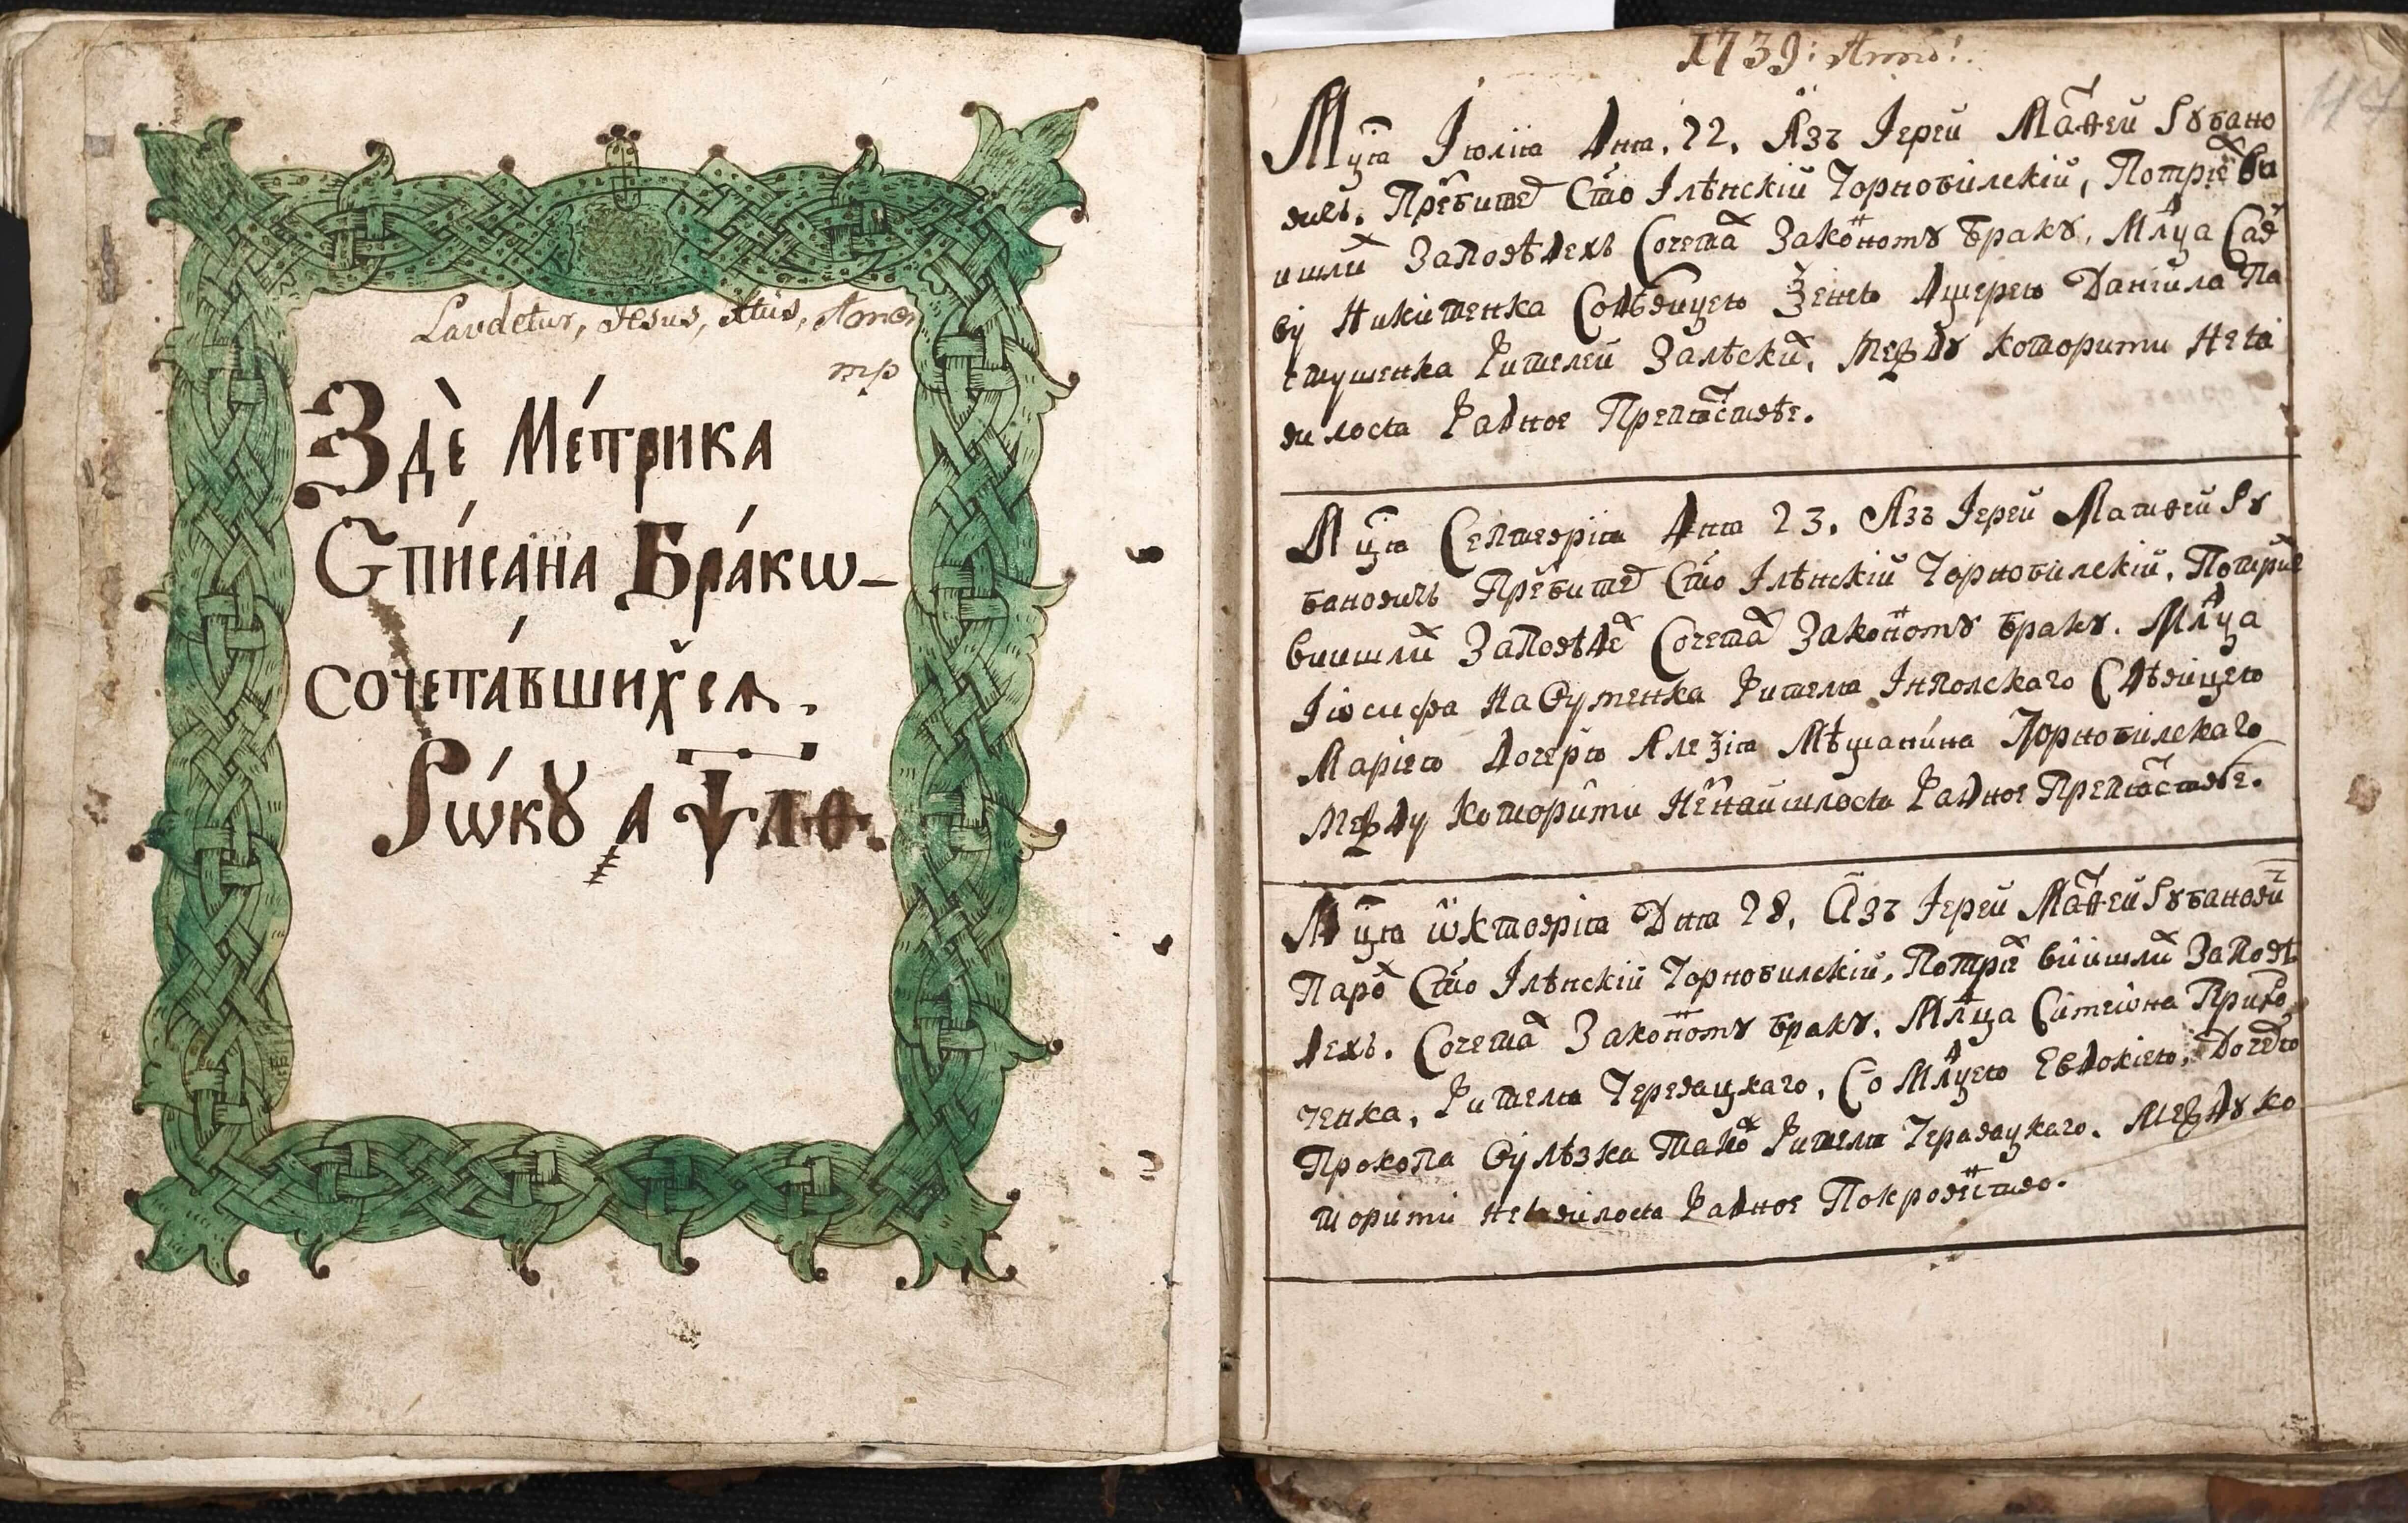 Laudetur, Jesus, Xtus, Amen
mp
Здѐ Ме́трика
Спи́сана Бра́кѡ–
соче́та́вшихсѧ.
Рѡ́кȣ ҂а ѱ л ѳ.
1739: Anno!
Мц҃а Іюліѧ Днѧ. 22. Азъ Іерей Матѳей Рȣбано
вичъ. Превитер Сто Ілѣнскій Чорнобилскій, По трiех ви
ишлих Заповѣдехъ Сочетах Законномȣ бракȣ, Млдца Сав
ву Никитенка Со Дѣвицею Дщерею Даніила Па
стушенка Жителей Залѣских, межд̾ȣ которими Не ѧ
вилосѧ Жадное Препѧтствіе.
Мц҃а Септевріѧ Днѧ 23. Азъ Іерей Матѳей Рȣ
бановичъ Превитер Сто Ілѣнскій Чорнобилскій. По трiех
виишлих Заповѣдех Сочетах Законномȣ бракȣ. Млдца
Іѡсифа Жителѧ Інполскаго С Дѣвицею
Маріею Дочерю Алезіѧ Мѣщанина Чорнобилскаго
Между Которими Не Найшлосѧ Жадное Препѧтствіе.
Мц҃а Ѡктовріѧ Днѧ 28. Азъ Іерей Матѳей Рȣбанович
Парох Сто Ілѣнскій Чорнобилскій, По трiех виишлих Заповѣ
дехъ. Сочетах Законномȣ бракȣ. Млдца Симеѡна Прихо
ченка, Жителѧ Черевацкаго, Со Млдцею Евдокіею, Дочерю
Прокопа Жителѧ Черавацкаго. Междȣ ко
торими Не ѧвилосѧ Жадное Покровенство.